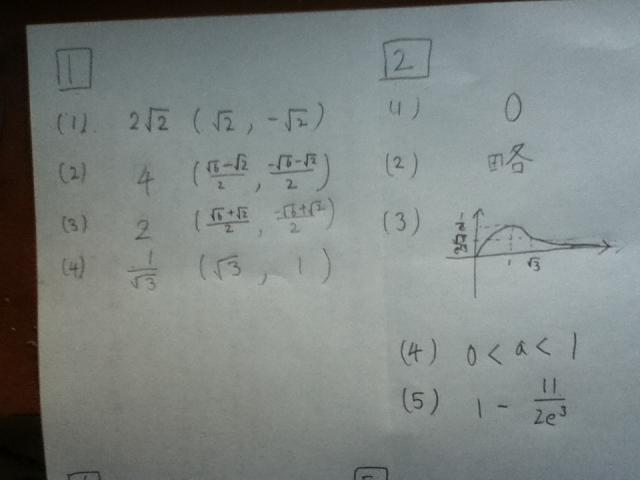 1
(1). 2√2 (√2, -√2)
(2) 4 ((√6-√2)/2, (-√6-√2)/2)
(3) 2 ((√6+√2)/2, (-√6+√2)/2)
(4) 1/√3 (√3, 1)
2
(1) 0
(2) 略
(3)
1 √3
(4) 0 < a < 1
(5) 1 - 11/2e³